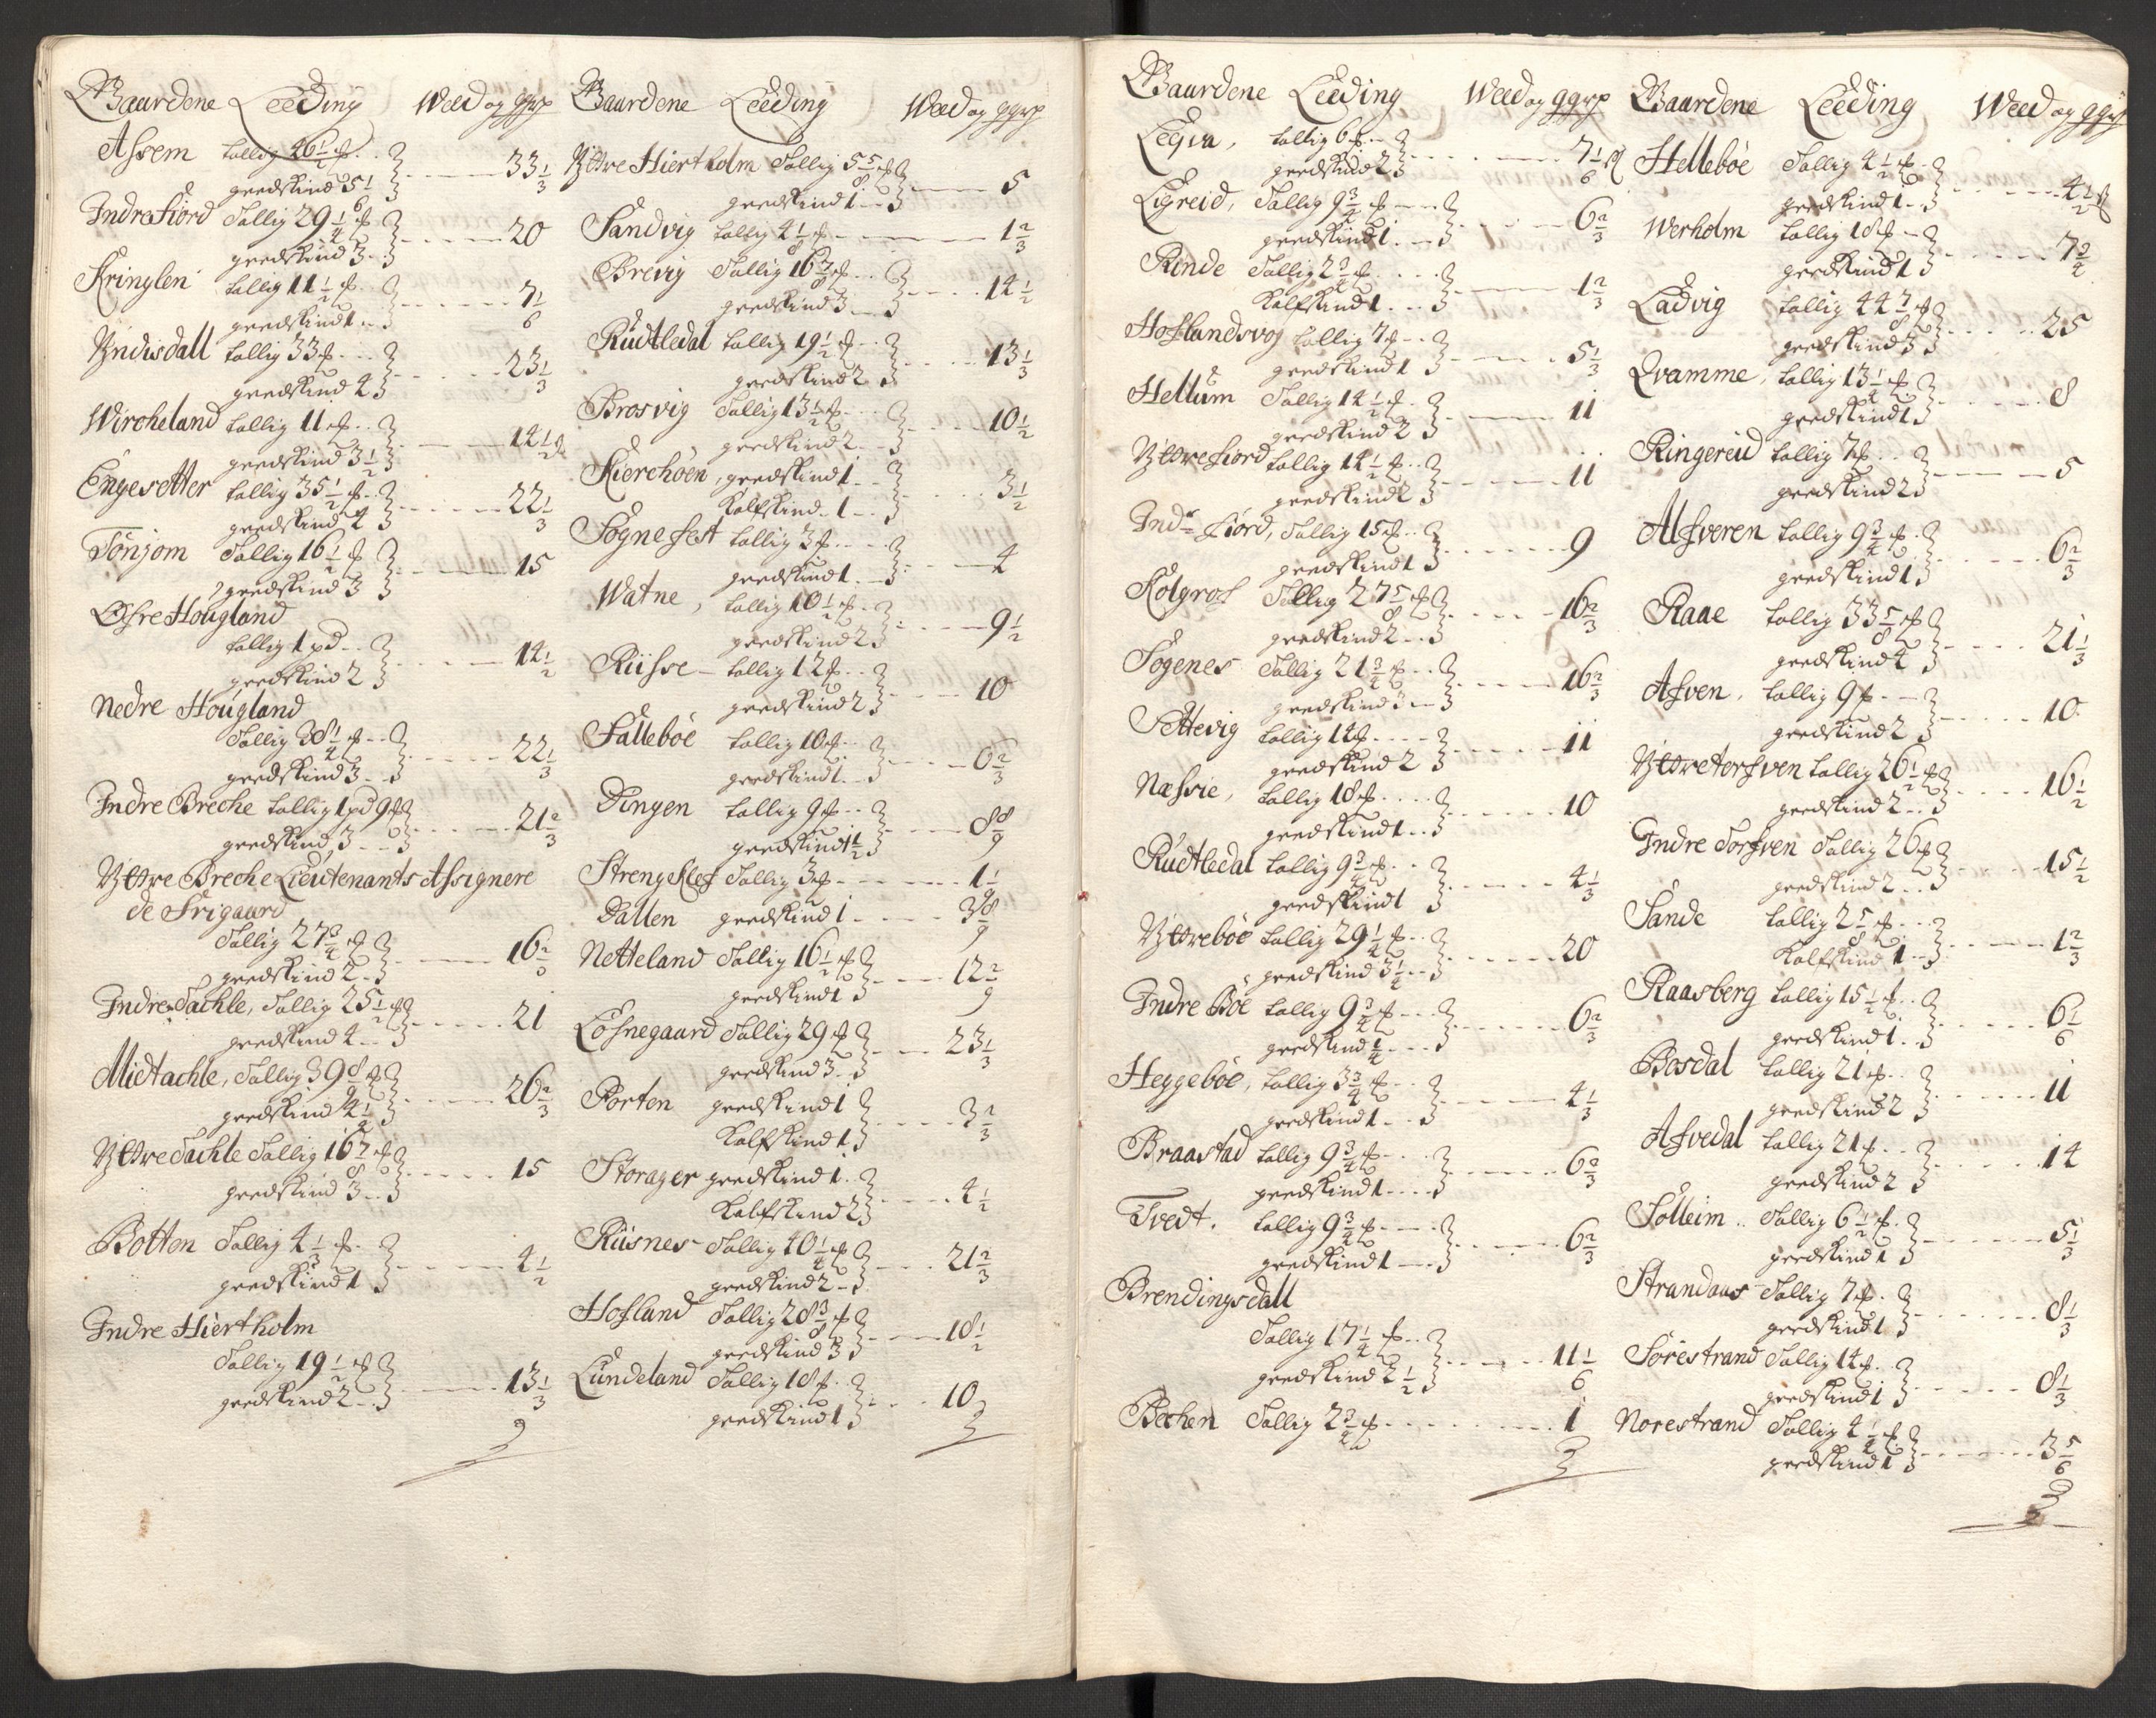 Gaardene Leeding Wed og ggrp
Assem tallig 46 1/2 ℔
geedskind 5 1/6 33 1/3
Indrefiord Tallig 29 1/4 ℔
geedskind 3 20
Kringlen tallig 11 1/2 ℔
geedskind 1 7 1/6
Yndisdall tallig 33 ℔
geedskind 4 23 1/3
Wircheland tallig 11 ℔
geedskind 3 1/2 14 1/2
Engesetter tallig 35 1/2 ℔
geedskind 4 22 1/3
Tönjom Tallig 16 1/2 ℔
geedskind 3 15
Øfre Hougland
tallig 1 pd
geedskind 2 14 1/2
Nedre Hougland
Tallig 38 1/4 ℔
geedskind 3 22 1/3
Indre Breche tallig 1 pd 9 ℔
geedskind 3 21 2/3
Yttre Breche Lieutenants Assignere
de Frigaard
Tallig 27 3/4 ℔
geedskind 2 16 2/3
Indre Tachle, Tallig 25 1/2 ℔
geedskind 4 21
Midtachle, Tallig 39 8/9 ℔
geedskind 4 1/2 26 2/3
Yttre Tachle Tallig 16 7/8 ℔
geedskind 3 15
Botten Tallig 4 1/3 ℔
geedskind 1 4 1/2
Indre Hiertholm
Tallig 19 1/2 ℔
geedskind 2 13 1/3
Gaardene Leeding Wed og ggrp
Yttre Hiertholm Tallig 5 5/8 ℔
geedskind 1 5
Sandvig tallig 4 1/8 ℔ 1 2/3
Brevig Tallig 16 7/8 ℔
geedskind 3 14 1/2
Rudtledal tallig 19 1/2 ℔
geedskind 2 13 1/3
Brosvig Tallig 13 1/2 ℔
geedskind 2 10 1/2
Kierchöen, geedskind 1
Kalfskind 1 3 1/2
Sognefest tallig 3 ℔
geedskind 1 4
Watne, tallig 10 1/2 ℔
geedskind 2 9 1/2
Riisse tallig 12 ℔
geedskind 2 10
Falleböe tallig 10 ℔
geedskind 1 6 2/3
Dingen tallig 9 ℔
geedskind 1 1/2 8 8/9
Strengeklef Tallig 3 ℔ 1 1/9
Dallen geedskind 1 3 8/9
Netteland Tallig 16 1/2 ℔
geedskind 1 12 2/9
Losnegaard Tallig 29 ℔
geedskind 3 23 1/3
Porten geedskind 1
Kalfskind 1 3 2/3
Storager geedskind 1
Kalfskind 2 4 1/2
Riisnes Tallig 40 1/4 ℔
geedskind 2 21 2/3
Hofland Tallig 28 3/8 ℔
geedskind 3 18 1/2
Lundeland Tallig 18 ℔
geedskind 1 10
Gaardene Leeding Wed og ggrp
Leqva, tallig 6 ℔
geedskind 2 7 1/6
Ligreid, Tallig 9 3/4 ℔
geedskind 1 6 2/3
Rinde Tallig 2 3/4 ℔
Kalfskind 1 1 2/3
Hoflandsvog tallig 7 ℔
geedskind 1 5 1/3
Hellum Tallig 14 1/2 ℔
geedskind 2 11
Yttrefiord tallig 14 1/2 ℔
geedskind 2 11
Indr fiord, Tallig 15 ℔
geedskind 1 9
Kolgrof Tallig 27 5/8 ℔
geedskind 2 16 2/3
Sogenes Tallig 21 3/4 ℔
geedskind 3 16 2/3
Settevig tallig 14 ℔
geedskind 2 11
Næssie, tallig 18 ℔
geedskind 1 10
Rudtledal tallig 9 3/4 ℔
geedskind 1 4 1/3
Yttreböe tallig 29 1/4 ℔
geedskind 3 1/4 20
Indre Böe tallig 9 3/4 ℔
geedskind 1/4 6 2/3
Heggeböe, tallig 3 3/4 ℔
geedskind 1 4 1/3
Braastad tallig 9 3/4 ℔
geedskind 1 6 2/3
Tvedt. tallig 9 3/4 ℔
geedskind 1 6 2/3
Brendingsdall
Tallig 17 1/4 ℔
geedskind 2 1/2 11 1/6
Bechen Tallig 2 3/4 ℔ 1
Gaardene Leeding Wed og ggrp
Helleböe Tallig 4 1/2 ℔
geedskind 1 4 1/2
Werholm tallig 18 ℔
geedskind 1 7 3/4
Ladvig tallig 44 7/8 ℔
geedskind 3 25
Qvamme, tallig 13 1/4 ℔
geedskind 1 8
Ringereid tallig 7 ℔
geedskind 2 5
Alfveren tallig 9 3/4 ℔
geedskind 1 6 2/3
Raae tallig 33 5/8 ℔
geedskind 4 21 1/3
Asven, tallig 9 ℔
geedskind 2 10
Yttre Torfven tallig 26 1/2 ℔
geedskind 2 16 1/2
Indre Torfven Tallig 26 ℔
geedskind 2 15 1/2
Sande tallig 2 5/8 ℔
Kalfskind 1 1 2/3
Raasberg tallig 15 1/2 ℔
geedskind 1 6 1/6
Bosdal tallig 21 ℔
geedskind 2 11
Asvedal tallig 21 ℔
geedskind 2 14
Solleim Tallig 6 1/2 ℔
geedskind 1 5 1/3
Strandaas Tallig 7 ℔
geedskind 1 8 1/3
Sörestrand Tallig 14 ℔
geedskind 1 8 1/3
Norestrand Tallig 4 1/4 ℔
geedskind 1 3 5/6